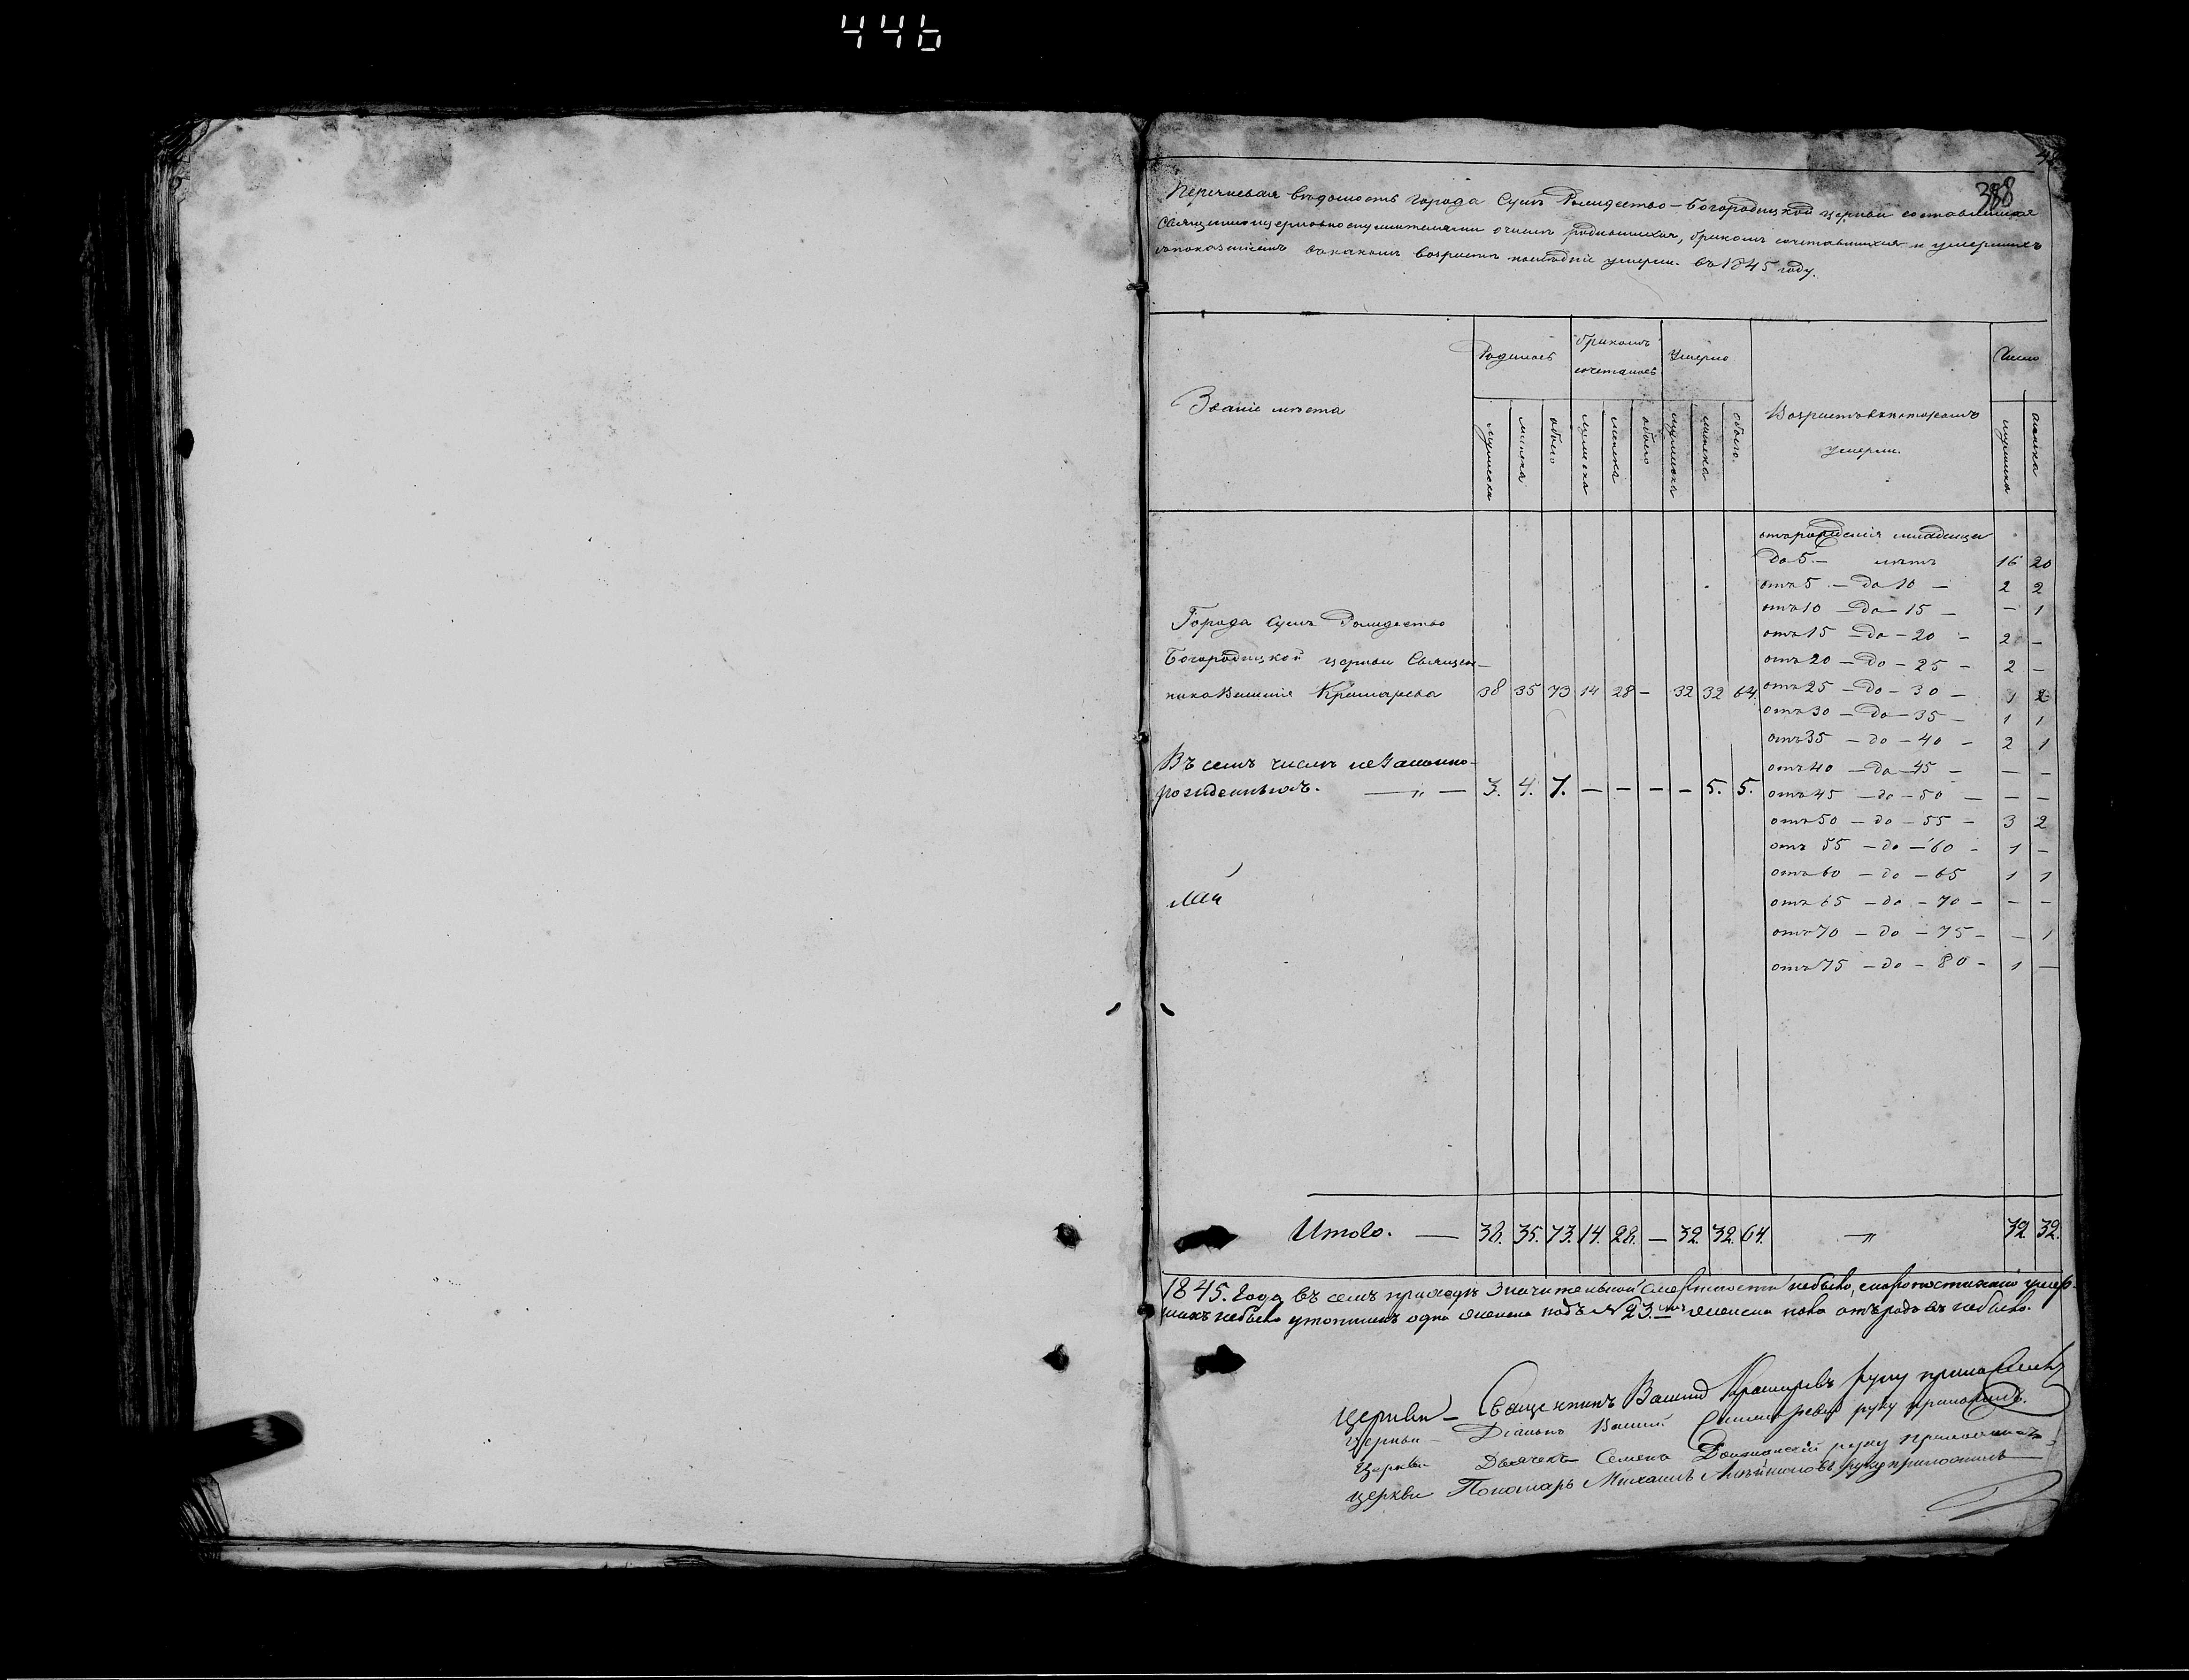 446
388
Перечневая вѣдомость города Сумъ Рождество-Богородицкой церкви составленная
Священноцерковнослужителями о числѣ родившихся, бракомъ сочетавшихся и умершихъ
съ показаніемъ въ какомъ возрастѣ послѣдніе умерли. въ 1845 году.
Званіе мѣста
Родилось
бракомъ
сочеталось
Умерло
Возрастъ въ которомъ
умерли.
Число
мужеска
женска
обоего
мужеска
женска
обоего
мужеска
женска
обоего.
мужеска
женска
отъ рожденія младенцы
до 5 – лѣтъ 16 20
отъ 5 – до 10 – 2 2
отъ 10 – до – 15 – – 1
отъ 15 – до – 20 – 2 –
отъ 20 – до – 25 – 2 –
отъ 25 – до – 30 – 1 2
отъ 30 – до – 35 – 1 1
отъ 35 – до – 40 – 2 1
отъ 40 – до – 45 – – –
отъ 45 – до – 50 – – –
отъ 50 – до – 55 – 3 2
отъ 55 – до – 60 – 1 –
отъ 60 – до – 65 1 1
отъ 65 – до – 70 – – –
отъ 70 – до – 75 – – 1
отъ 75 – до – 80 – 1 –
Города Сумъ Рождество
Богородицкой церкви Священ–
ника Василія Крамарева 38 35 73 14 28 – 32 32 64.
Въ семъ числѣ незаконно–
рожденныхъ. — „ — 3. 4. 7. – – – – 5. 5.
Итого. — 38. 35. 73. 14. 28. – 32. 32. 64. — „ 32. 32.
1845. Года въ семъ приходѣ значительной смертности небыло, скоропостижно умер–
шихъ небыло утопшихъ одна женска подъ № 23. женска пола отъ родовъ небыло.
Церкви – Священникъ Василій Крамаревъ руку приложилъ
Церкви – Діаконъ Василій руку приложилъ.
Церкви Дьячекъ Семенъ руку приложилъ
Церкви Пономарь Михаилъ руку приложилъ